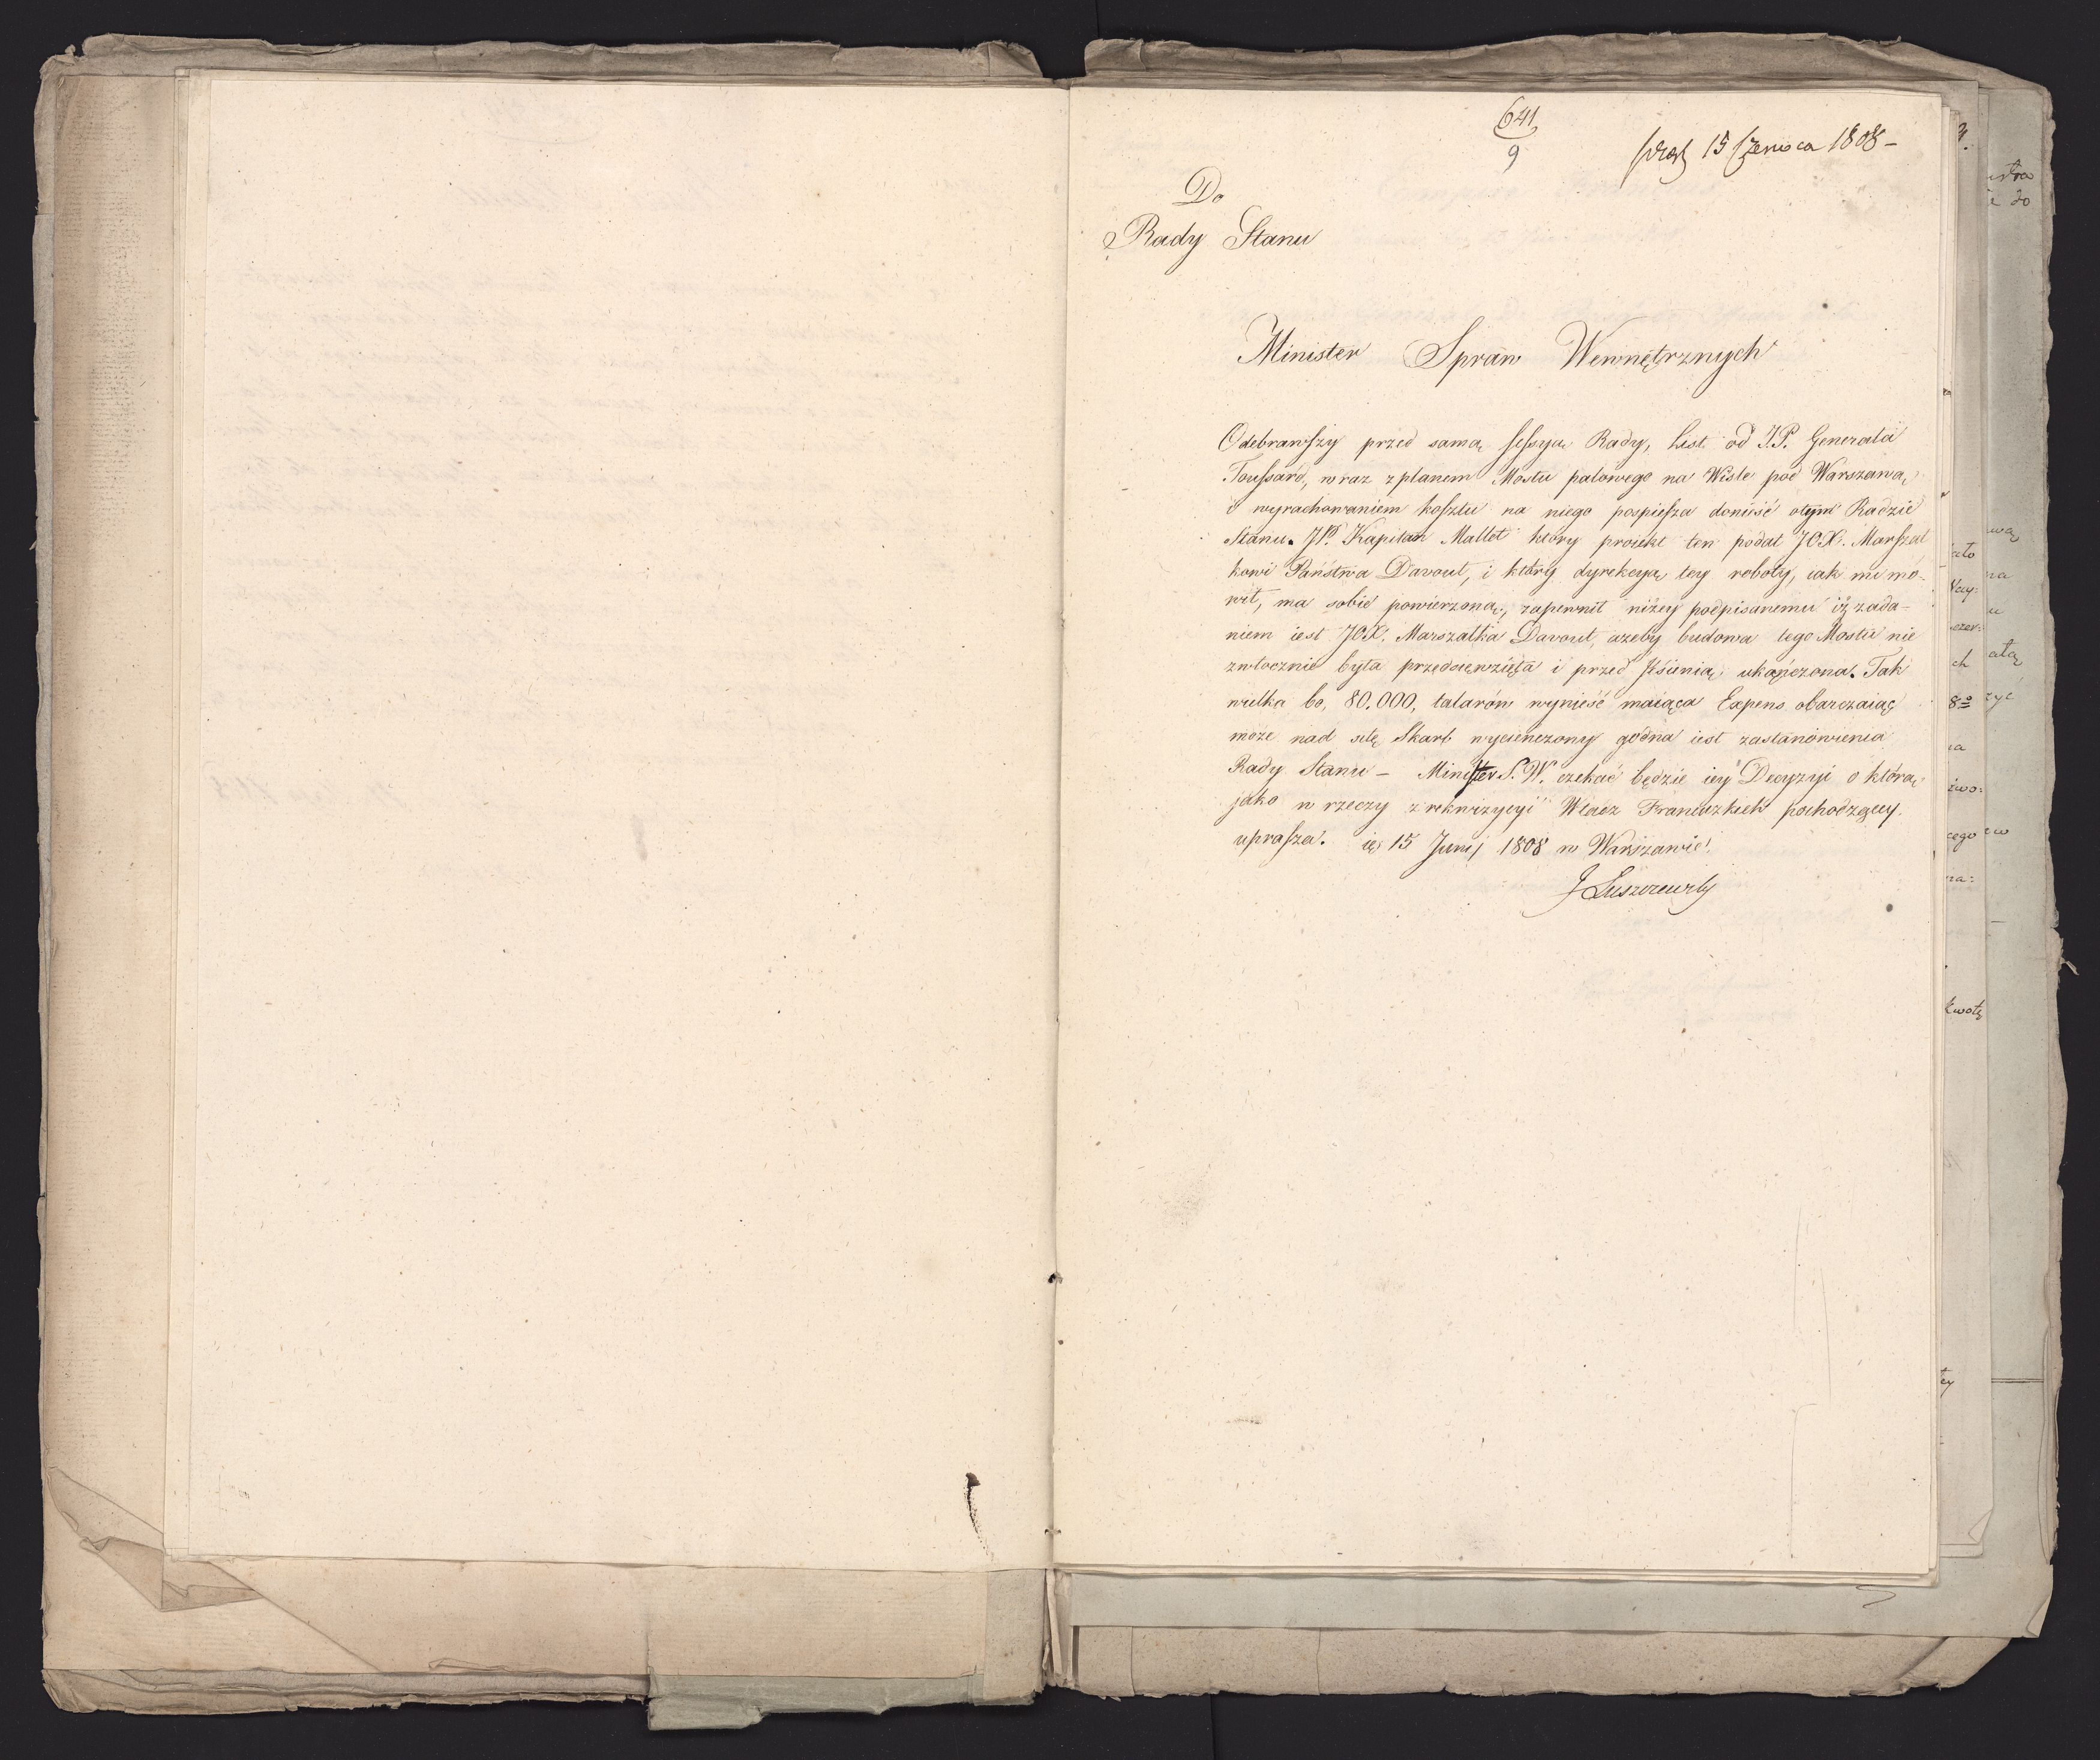 641
9
15 Czerwca 1808 -
Do
Rady Stanu
Minister Spraw Wewnętrznych
Odebrawszy przed samą sessyą Rady, List od J.P. Generała
Toussard, wraz z planem Mostu palowego na Wiśle pod Warszawą,
i wyrachowaniem kosztu na niego pospiesza donieść otym Radzie
Stanu. JP. Kapitan Mallet który proiekt ten podał JOX. Marszał
kowi Państwa Davout, i który dyrekcyą tey roboty, iak mi mó-
wił, ma sobie powierzoną, zapewnił niżey podpisanemu iż żąda-
niem iest JOX. Marszałka Davout, ażeby budowa tego Mostu nie
zwłocznie była przedsięwzięta i przed Jesienią ukończona. Tak
wielka bo, 80.000, talarów wynieść maiąca Expens obarczaiąc
może nad siłę Skarb wycieńczony godna iest zastanowienia
Rady Stanu - Minister S. W. czekać będzie iey Decyzyi o którą
jako w rzeczy z rekwizycyi Władz Francuzkich pochodzącey
uprasza. 15 Junij 1808 w Warszawie.
J Łuszczewski
wą
na
u
ch
8o
na
kwotę
ey